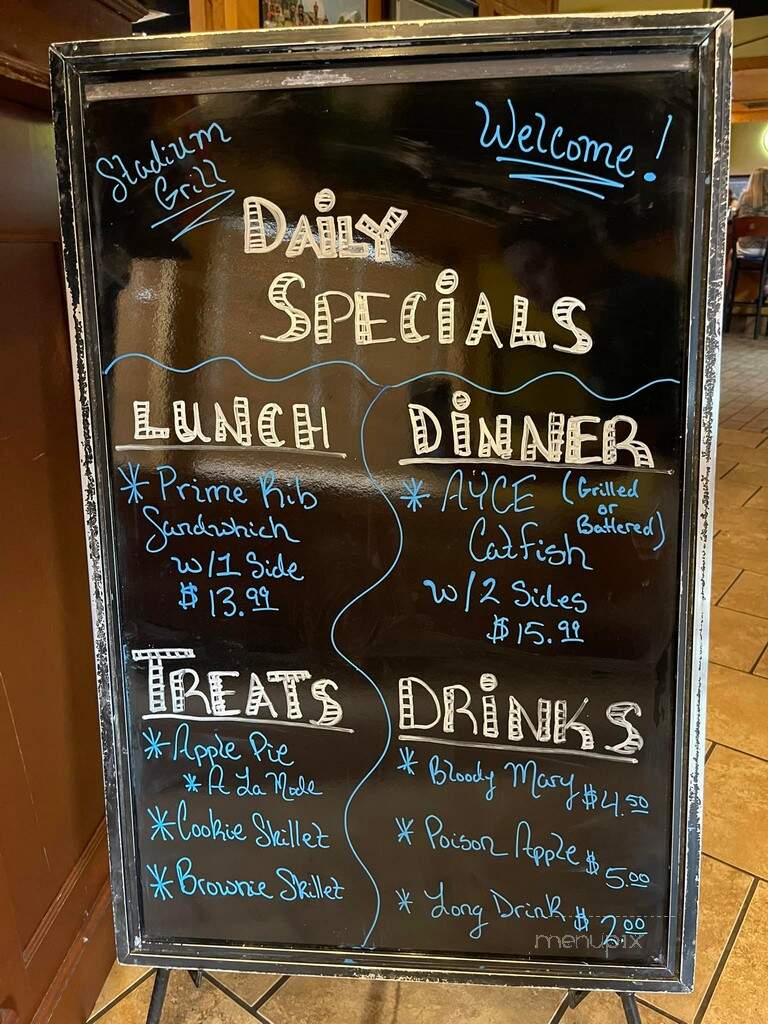 Stadium
Grill
Welcome!
DAiLY
SPECiALS
LUNCH
* Prime Rib
Sandwhich
w/1 Side
$13.99
DiNNER
* AYCE (Grilled
or
Battered)
Catfish
w/2 Sides
$15.99
TREATS
* Apple Pie
* A La Mode
* Cookie Skillet
* Brownie Skillet
DRiNKS
* Bloody Mary $4.50
* Poison Apple $5.00
* Long Drink $2.00
menupix